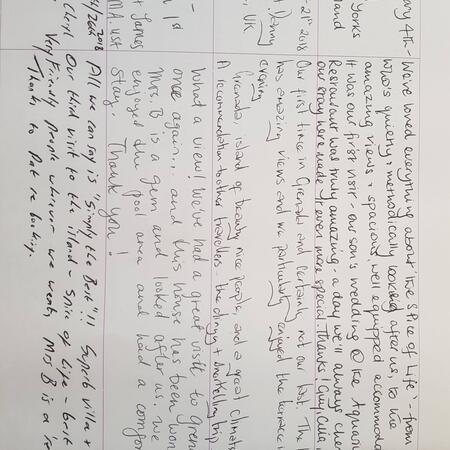 ary 4th - We've loved everything about 'The Spice of Life' - from
who's quietly + methodically looking after us, to the
amazing views + spacious, well equipped accommoda
Yorks It was our first visit - our son's wedding @ the Aquari
land Restaurant was truly amazing - a day we'll always cher
our stay here made it even more special. Thanks! Guy, Celia,
21st 2018 Our first time in Grenada and certainly not our last. The h
Danny has amazing views and we particularly enjoyed the terrace i
, UK evening
Grenada, island of beauty nice people, and a great climat
A recommendation to other travellers - the dingy + snorkelling trip
What a view! We've had a great visit to Gren
1st once again... and this house has been won
Mrs. B is a gem and looked after us. We
James enjoyed the pool area and had a comfor
MA. USA stay. Thank you!
/26th 2018 All we can say is "Simply the Best"!! Superb villa +
Cheryl Our third visit to the island - Spice of Life - best
Very Friendly people wherever we went, Mrs B is a 're
Thanks to Pat re booking.